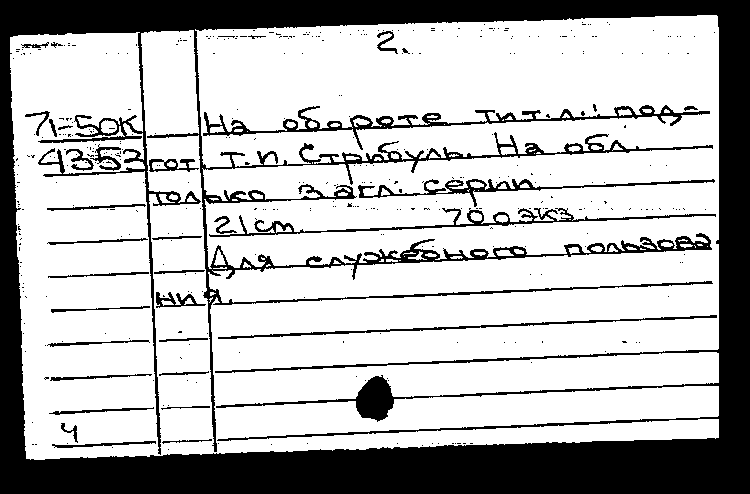 2.
71-50К На обороте тит.л.: под-
4353 гот. Т.П. Стрибуль. На обл.
только загл. серии.
21 cm. 700 экз.
Для служебного пользова-
ния.
4